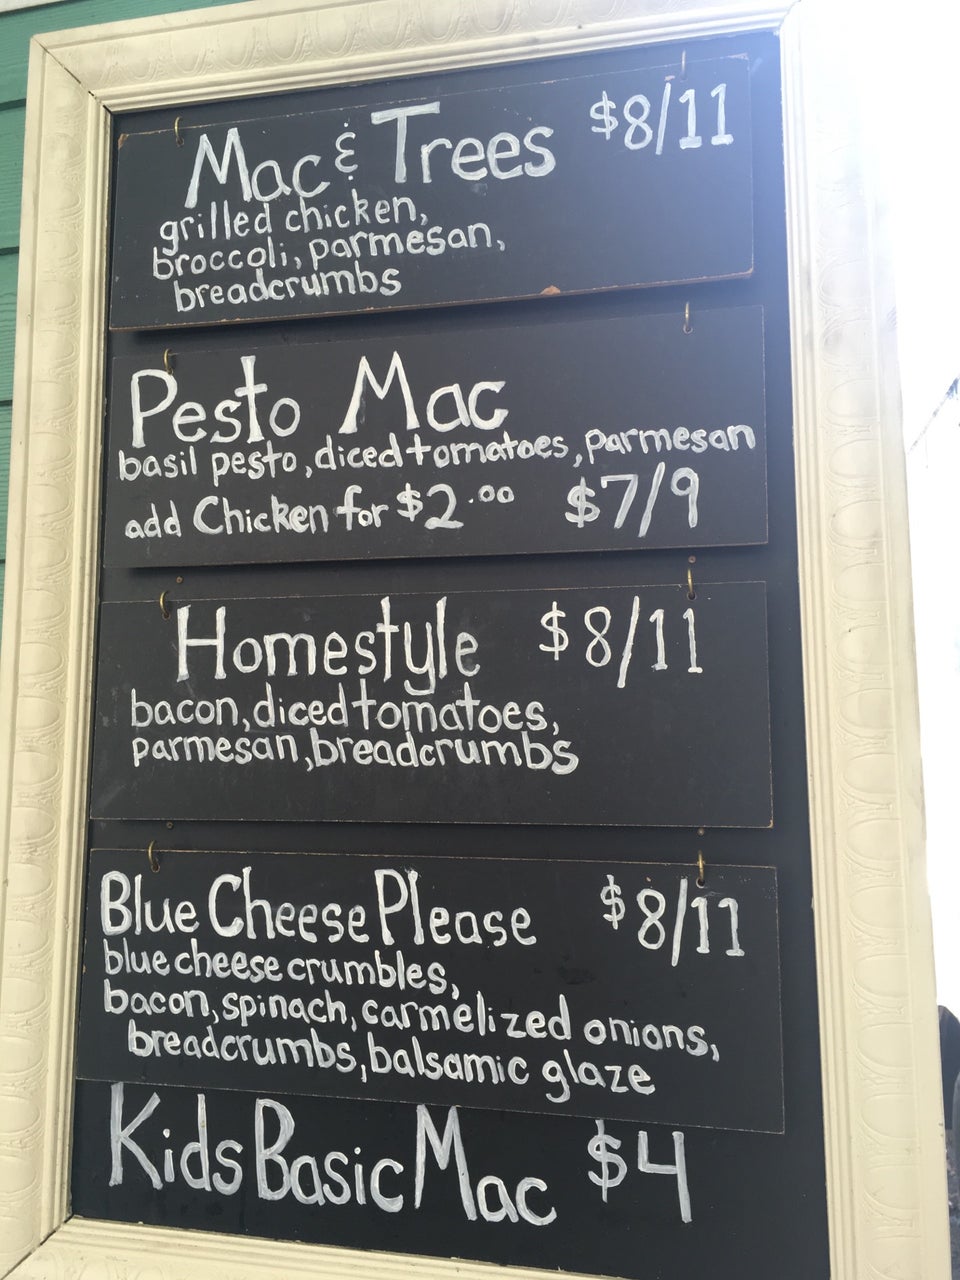 Mac & Trees $8/11
grilled chicken,
broccoli, parmesan,
breadcrumbs
Pesto Mac
basil pesto, diced tomatoes, parmesan
add Chicken for $2.00 $7/9
Homestyle $8/11
bacon, diced tomatoes,
parmesan, breadcrumbs
Blue Cheese Please $8/11
blue cheese crumbles,
bacon, spinach, carmelized onions,
breadcrumbs, balsamic glaze
Kids Basic Mac $4